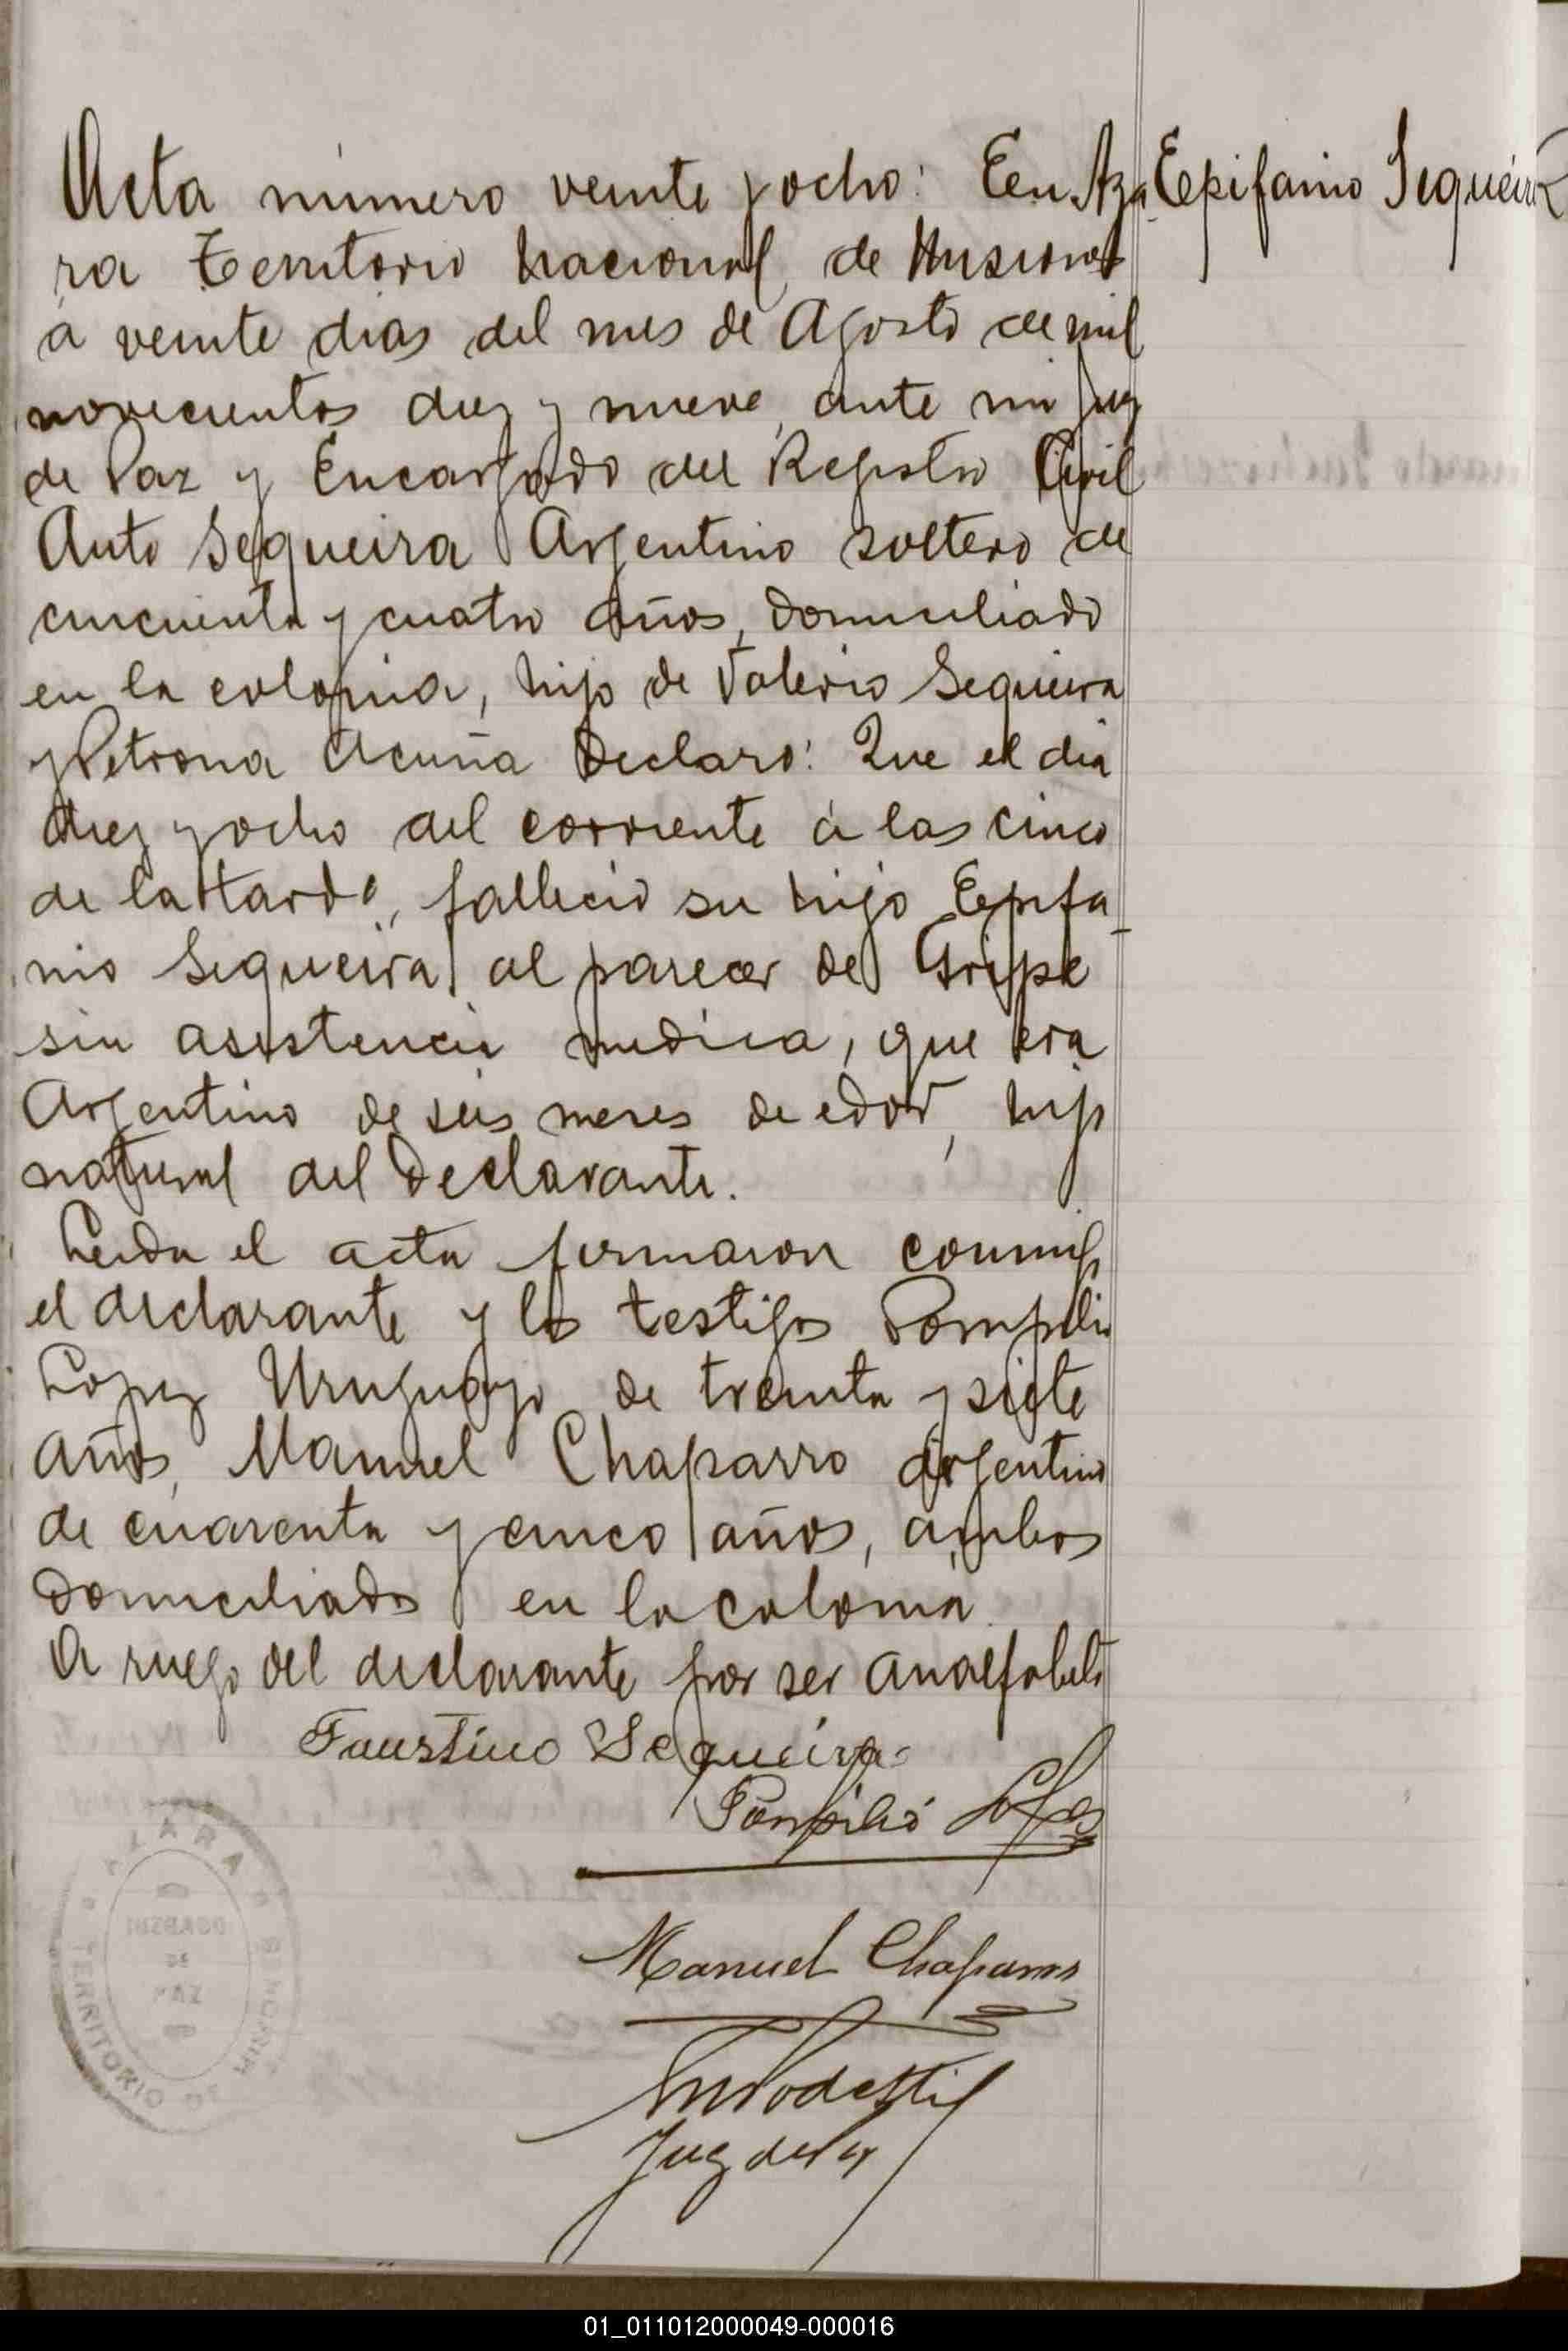 Acta número veinte y ocho: En Aza
Epifanio Sequeira
ra Territorio Nacional de Misiones
a veinte dias del mes de Agosto de mil
novecientos diez y nueve, ante mi Juez
de Paz y Encargado del Registro Civil
Anto Sequeira Argentino soltero de
cincuenta y cuatro años, domiciliado
en la colonia, hijo de Valerio Sequeira
y Petrona Acuña Declaro: Que el dia
diez y ocho del corriente á las cinco
de la tarde, fallecio su hijo Epifa-
nio Sequeira al parecer de Gripe
sin asistencia medica, que era
Argentino de seis meses de edad, hijo
natural del Declarante.
Leida el acta firmaron conmigo
el declarante y los testigos Pompilio
Lopez Uruguayo de treinta y siete
años, Manuel Chaparro argentino
de cuarenta y cinco años, ambos
domiciliados en la colonia
A ruego del declarante por ser analfabeto
Faustino Sequeira
Pompilio Lopez
Manuel Chaparro
Juez de Paz
JUZGADO
DE
PAZ
TERRITORIO DE